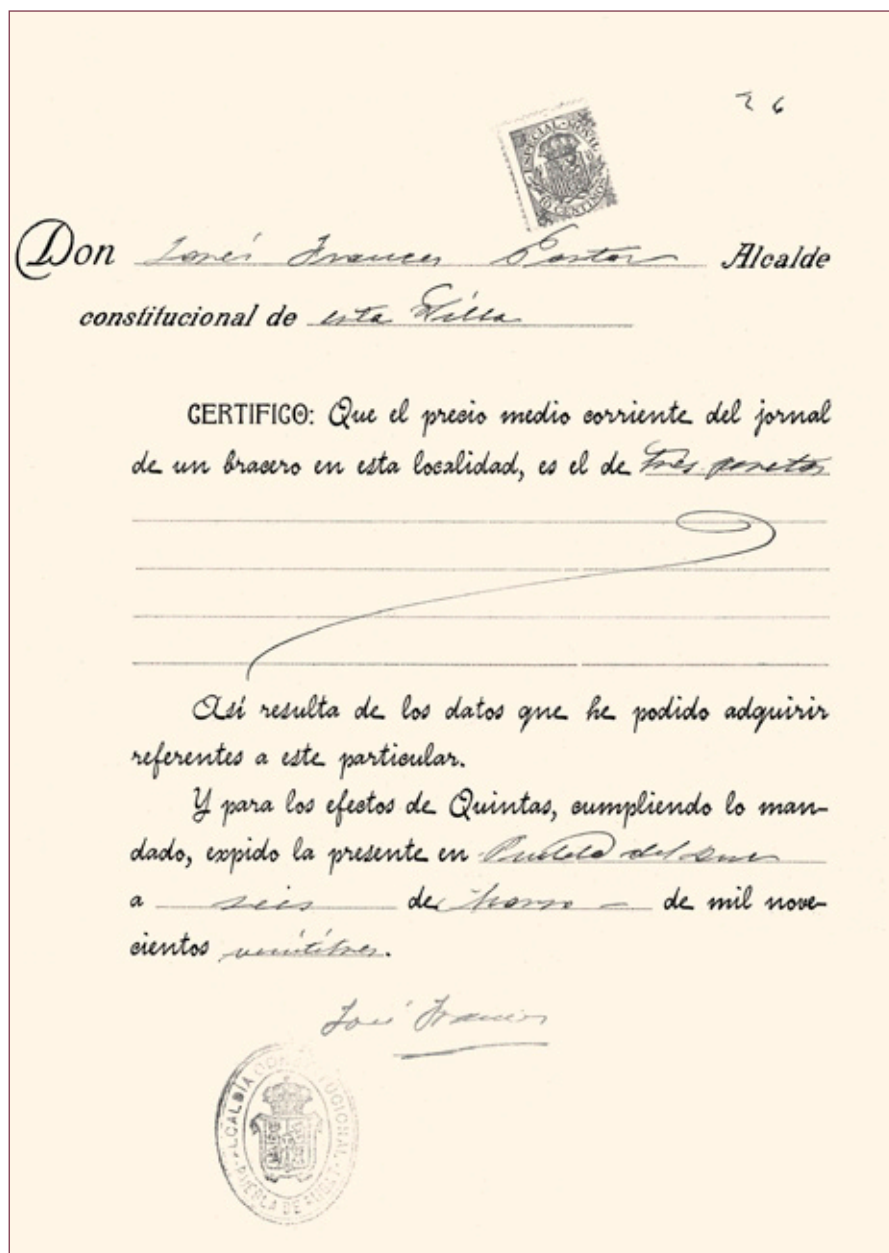 26
ESPECIAL MOVIL
10 CENTIMOS
Don José Frances Pastor Alcalde
constitucional de esta Villa
CERTIFICO: Que el precio medio corriente del jornal
de un bracero en esta localidad, es el de tres pesetas
Así resulta de los datos que he podido adquirir
referentes a este particular.
Y para los efectos de Quintas, cumpliendo lo man-
dado, expido la presente en Puebla del
a seis de Marzo de mil nove-
cientos veintitres.
José Frances
ALCALDÍA CONSTITUCIONAL
PUEBLA DE